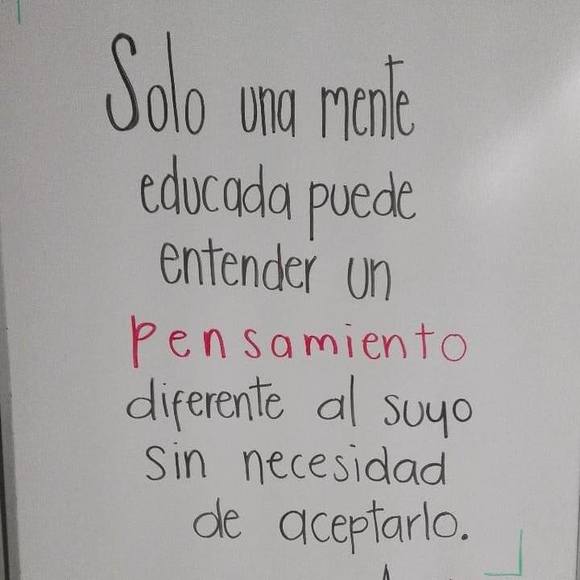 Solo una mente
educada puede
entender un
pensamiento
diferente al suyo
sin necesidad
de aceptarlo.